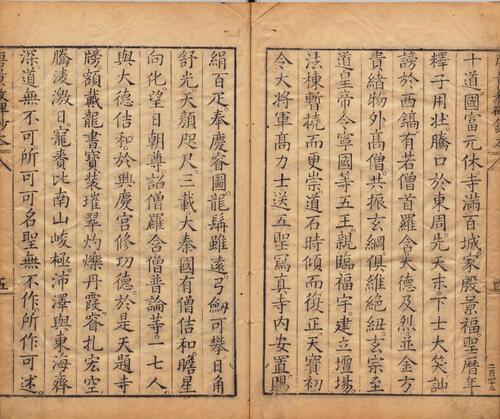 十道。國富元休。寺滿百城。家殷景福。聖曆年
釋子用壯。騰口於東周。先天末。下士大笑。訕
謗於西鎬。有若僧首羅含。大德及烈。並金方
貴緒。物外高僧。共振玄綱。俱維絕紐。玄宗至
道皇帝。令寧國等五王。親臨福宇。建立壇場。
法棟暫橈而更崇。道石時傾而復正。天寶初
令大將軍高力士送五聖寫真寺內安置。賜
絹百疋。奉慶睿圖。龍髯雖遠。弓劍可攀。日角
舒光。天顏咫尺。三載。大秦國有僧佶和。瞻星
向化。望日朝尊。詔僧羅含。僧普論等。一七人。
與大德佶和。於興慶宮修功德。於是天題寺
牓。額載龍書。寶裝璀翠。灼爍丹霞。睿扎宏空。
騰凌激日。寵賚比南山峻極。沛澤與東海齊
深。道無不可。所可可名。聖無不作。所作可述。
五